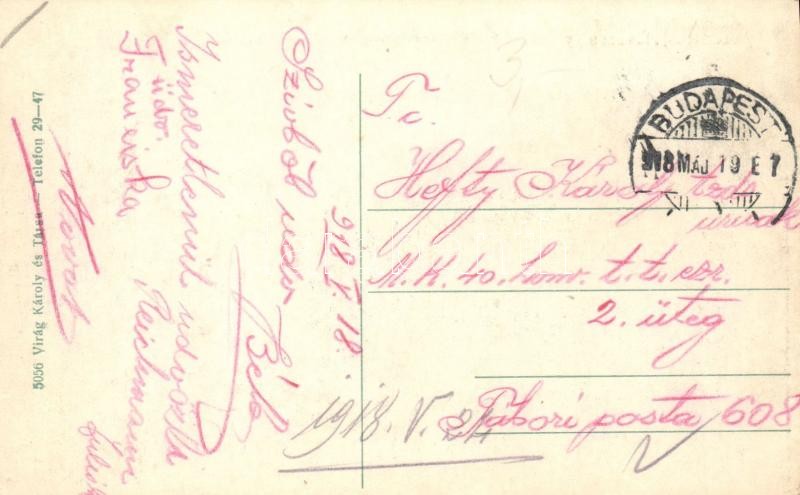 T. c.
Hefty Károly
M. K. 40. honv. t. t. ezr.
2. üteg
Tábori posta 608
BUDAPEST
918 MÁJ 19 E 7
918 V. 18.
Szívből üdv.
Béla
Ismeretlenül üdvözli
Reichmann
üdv.
Franciska
1918. V. 24
5056 Virág Károly és Társa — Telefon 29—47